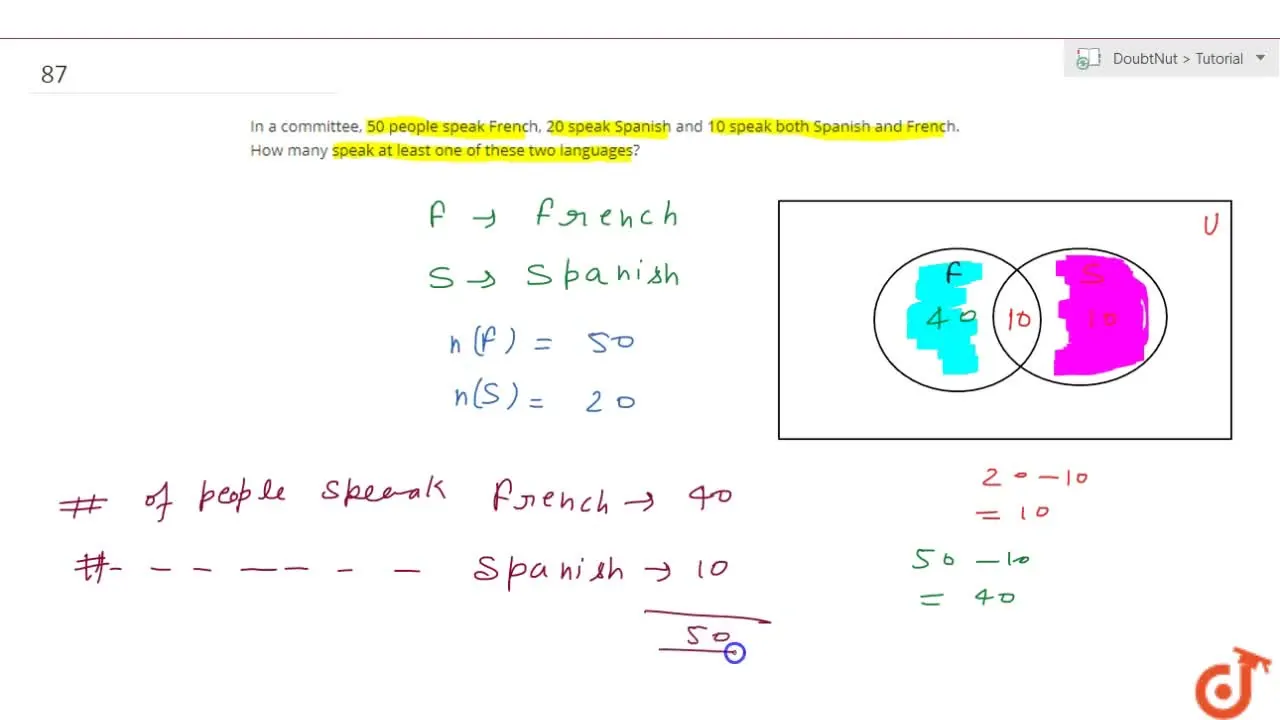 DoubtNut > Tutorial
87
In a committee, 50 people speak French, 20 speak Spanish and 10 speak both Spanish and French.
How many speak at least one of these two languages?
F → French
S → Spanish
n(F) = 50
n(S) = 20
U
F S
40 10 10
# of people speak French → 40
# - - - - - - - Spanish → 10
50
20 - 10
= 10
50 - 10
= 40